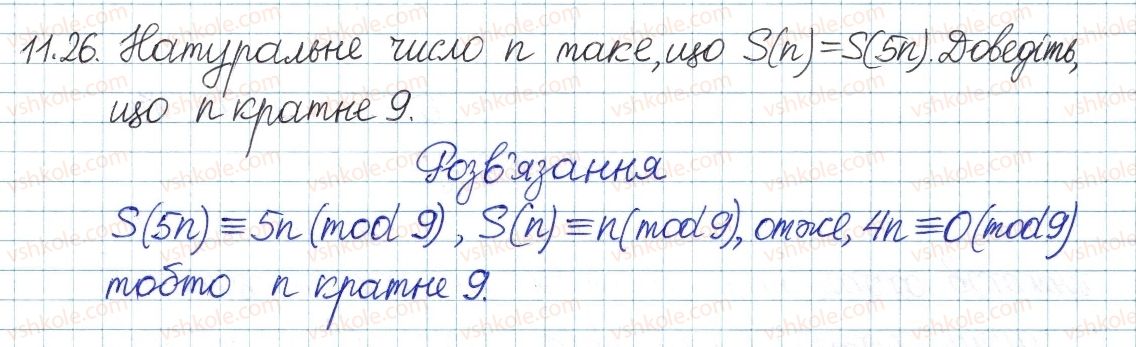 11.26. Натуральне число n таке, що S(n)=S(5n). Доведіть,
що n кратне 9.
Розв'язання
S(5n)≡5n(mod 9), S(n)≡n(mod 9), отже, 4n≡0(mod 9)
тобто n кратне 9.